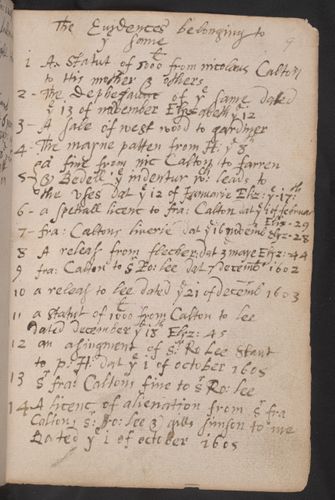 The Evydences belonging to
yͤ same
9
1 An statut of 500ˡⁱ from nicolaus Calton
to his mother & others
2 - The depbefance of yͤ same dated
yͤ 13 of november Elyzabeth yͤ 12
3 - A sale of west wood to gardiner
4 - The mayne patten from H: yͤ 8
a fine from nic Calton to farren
5 Bedell yͤ indentur wͨ leads to
the uses dat yͤ 12 of Ianuarie Eliz: yͤ 17ᵗʰ
6 - a speciall licent to fra: Calton dat yͤ 1 of februa
Elyz - 29
7 - fra: Caltons liverie dat yͤ 16 Elyz - 28
8 A releas from flecher dat 3 maye Elyz: 44
9 fra: Calton to Sͬ Ro: Lee dat 7 decemb 1602
10 a releas to Lee dated yͤ 21 of decemb 1603
11 a statut of 1000ˡⁱ from Calton to Lee
dated december yͤ 18 Elyz: 45
12 an asingment of Sͬ Ro Lee Statut
to p: H: dat yͤ 1 of october 1605
13 Sͬ fra: Caltons fine to Sͬ Ro: Lee
14 - A licenc of alienation from Sͬ fra
Calton Sͬ: Ro: Lee & simson to me
Dated yͤ 1 of october 1605